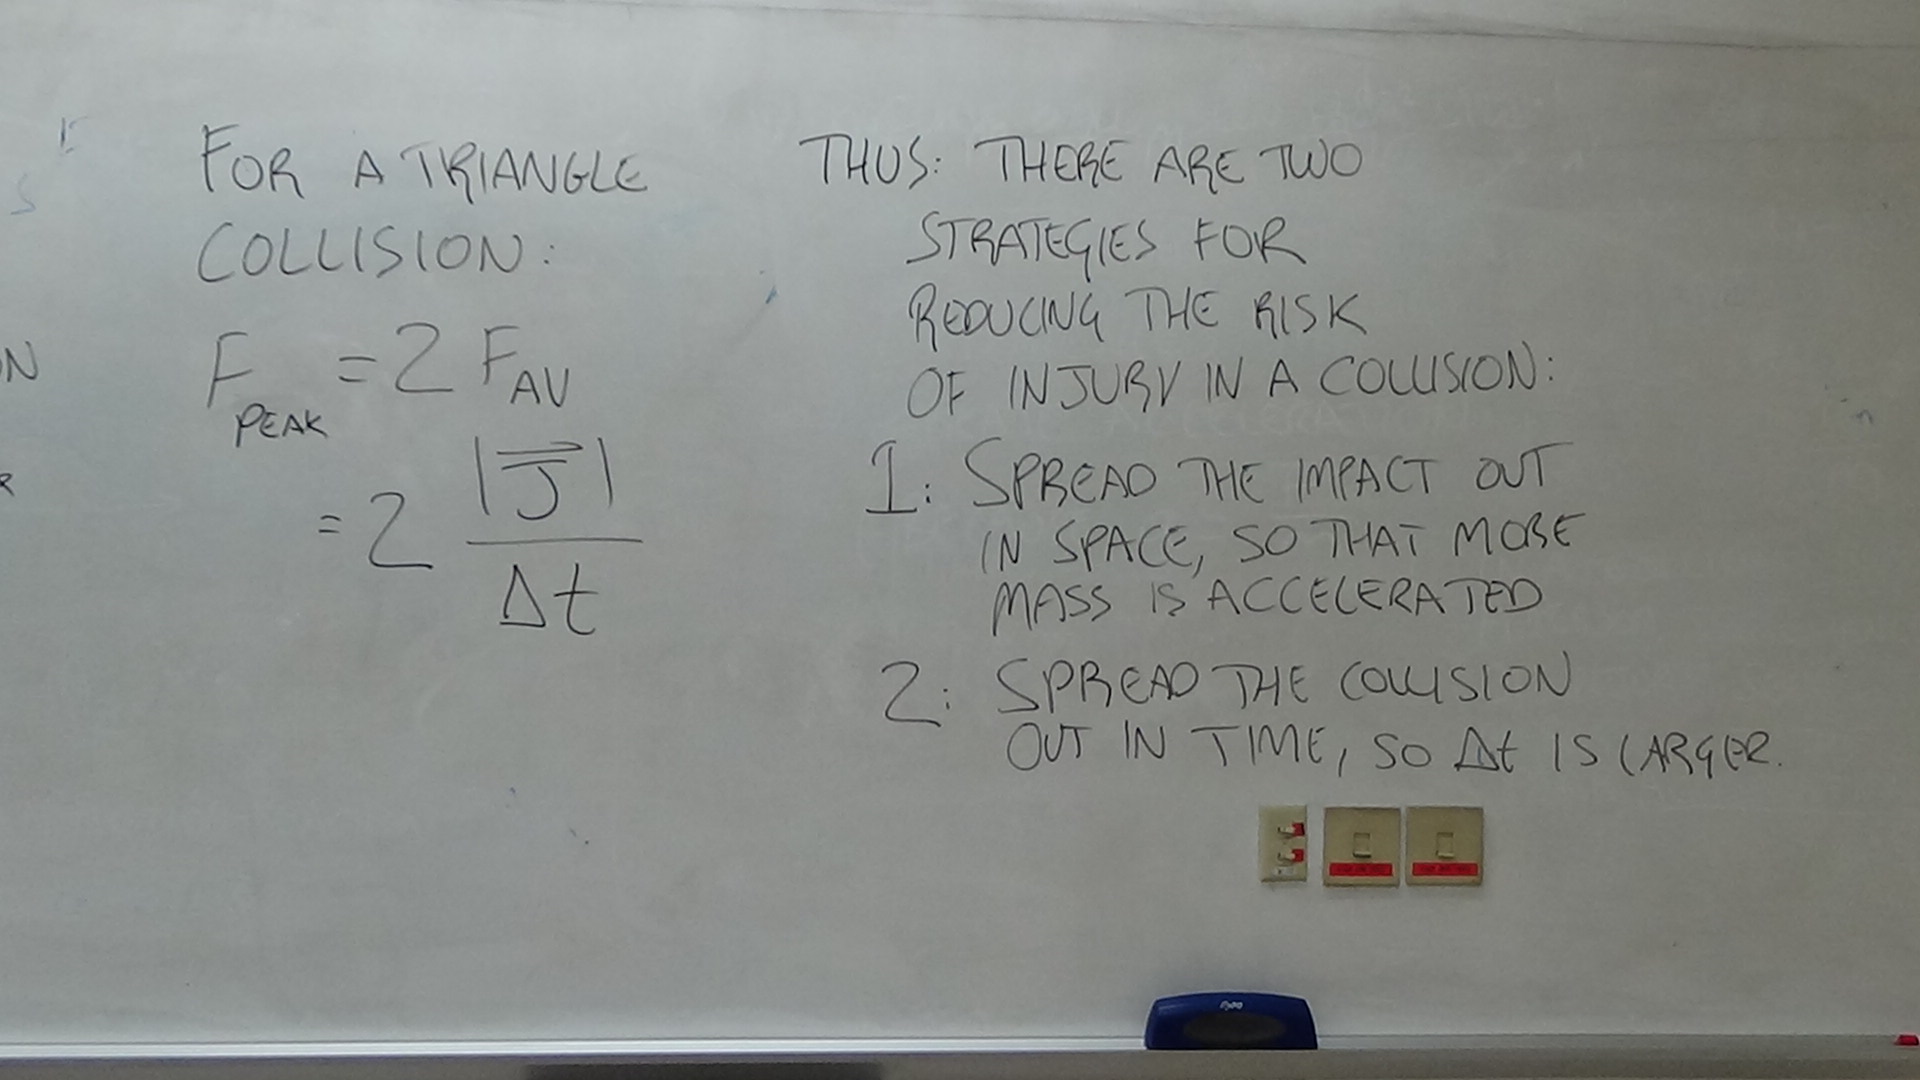 FOR A TRIANGLE
COLLISION:
F PEAK = 2 F AV
= 2 |J⃗| / Δt
THUS: THERE ARE TWO
STRATEGIES FOR
REDUCING THE RISK
OF INJURY IN A COLLISION:
1: SPREAD THE IMPACT OUT
IN SPACE, SO THAT MORE
MASS IS ACCELERATED
2: SPREAD THE COLLISION
OUT IN TIME, SO Δt IS LARGER.